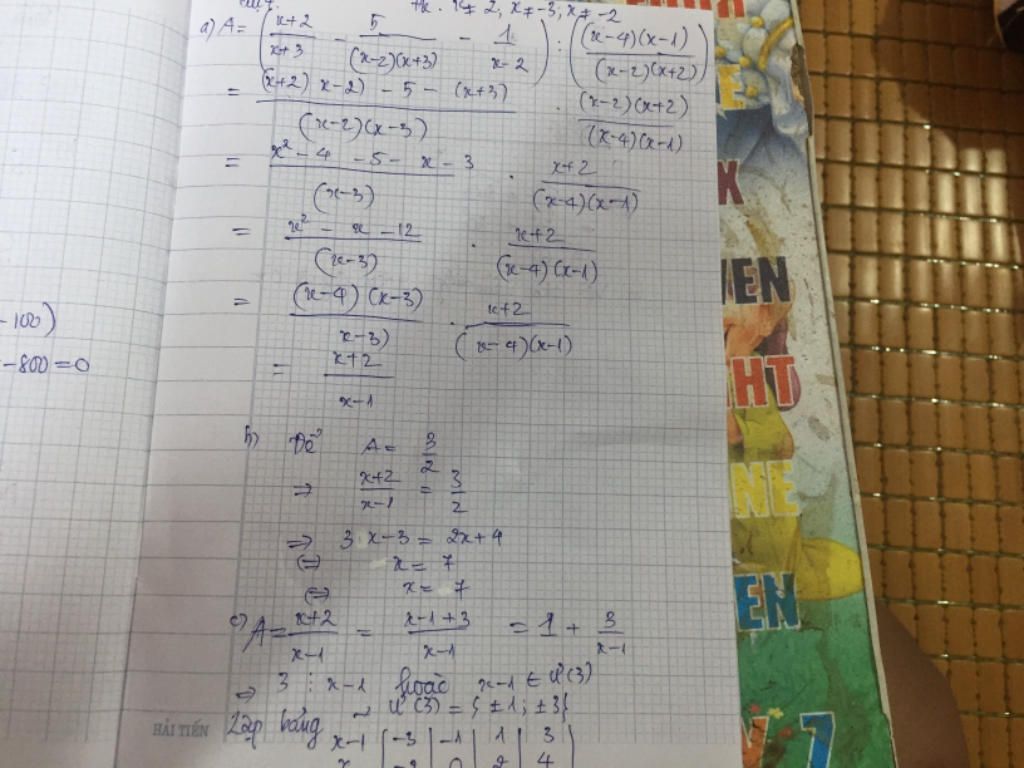 x ≠ 2, x ≠ -3, x ≠ -2
a) A = (x+2/x+3 - 5/(x-2)(x+3) - 1/x-2) : ((x-4)(x-1)/(x-2)(x+2))
= (x+2) x-2) - 5 - (x+3)/(x-2)(x-3) . (x-2)(x+2)/(x-4)(x-1)
= x² - 4 - 5 - x - 3/(x-3) . x+2/(x-4)(x-1)
= x² - x - 12/(x-3) . x+2/(x-4)(x-1)
= (x-4)(x-3)/x-3) . x+2/(x-4)(x-1)
= x+2/x-1
b) Để A = 3/2
⇒ x+2/x-1 = 3/2
⇒ 3x-3 = 2x+4
⇔ x = 7
⇔ x = 7
c) A = x+2/x-1 = x-1+3/x-1 = 1 + 3/x-1
⇒ 3 ⋮ x-1 hoặc x-1 ∈ Ư(3)
Ư(3) = {±1; ±3}
Lập bảng
x-1 | -3 | -1 | 1 | 3
x | -2 | 0 | 2 | 4
-100)
-800=0
HẢI TIẾN
K
VEN
HT
NE
EN
7